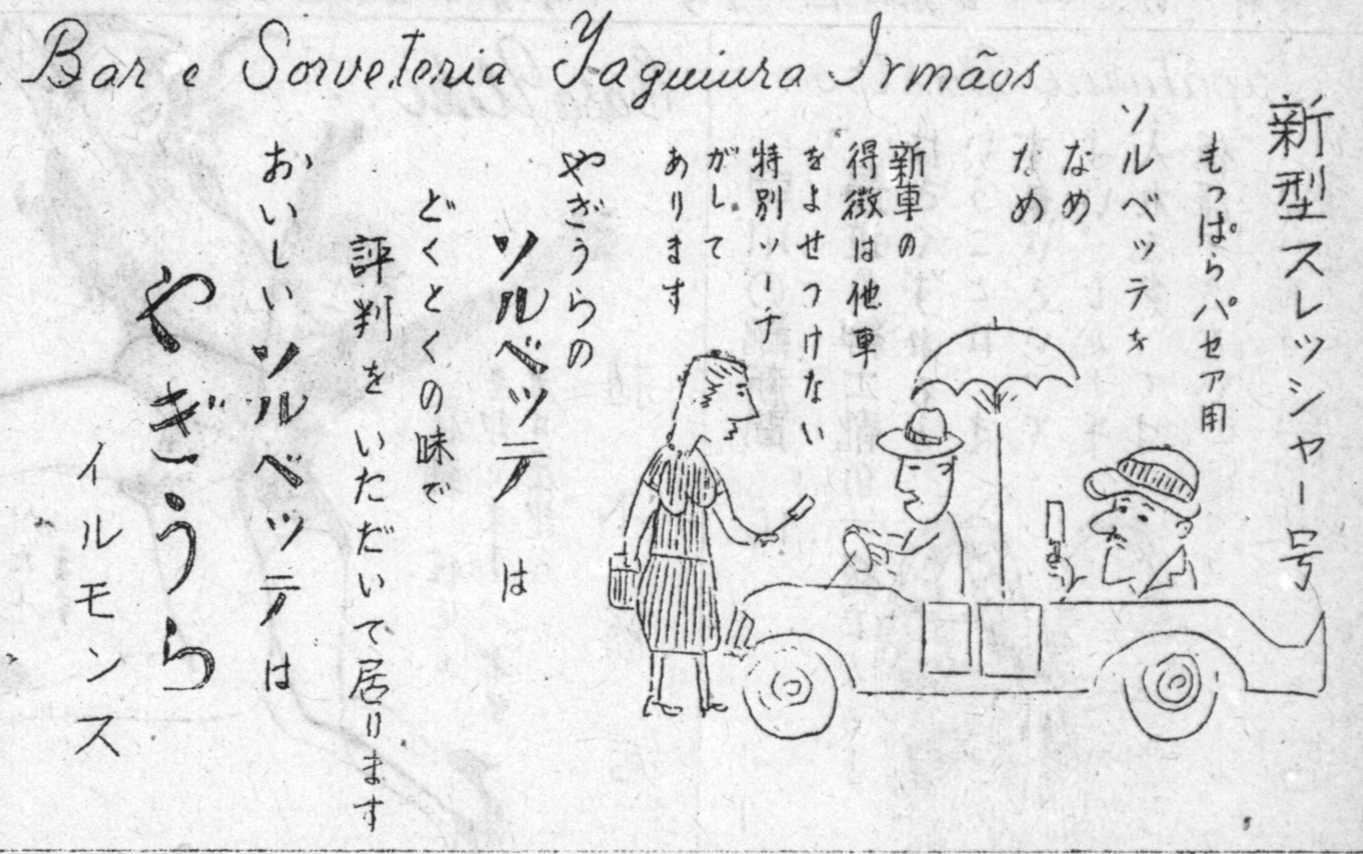 Bar e Sorveteria Yaguiura Irmãos
新型スレッシャー号
もっぱらパセア用
ソルベッテを
なめ
なめ
新車の
得徴は他車
をよせつけない
特別ツーチ
がして
あります
やぎうらの
ソルベッテは
どくとくの味で
評判をいただいて居ります
おいしいソルベッテは
やぎうら
イルモンス